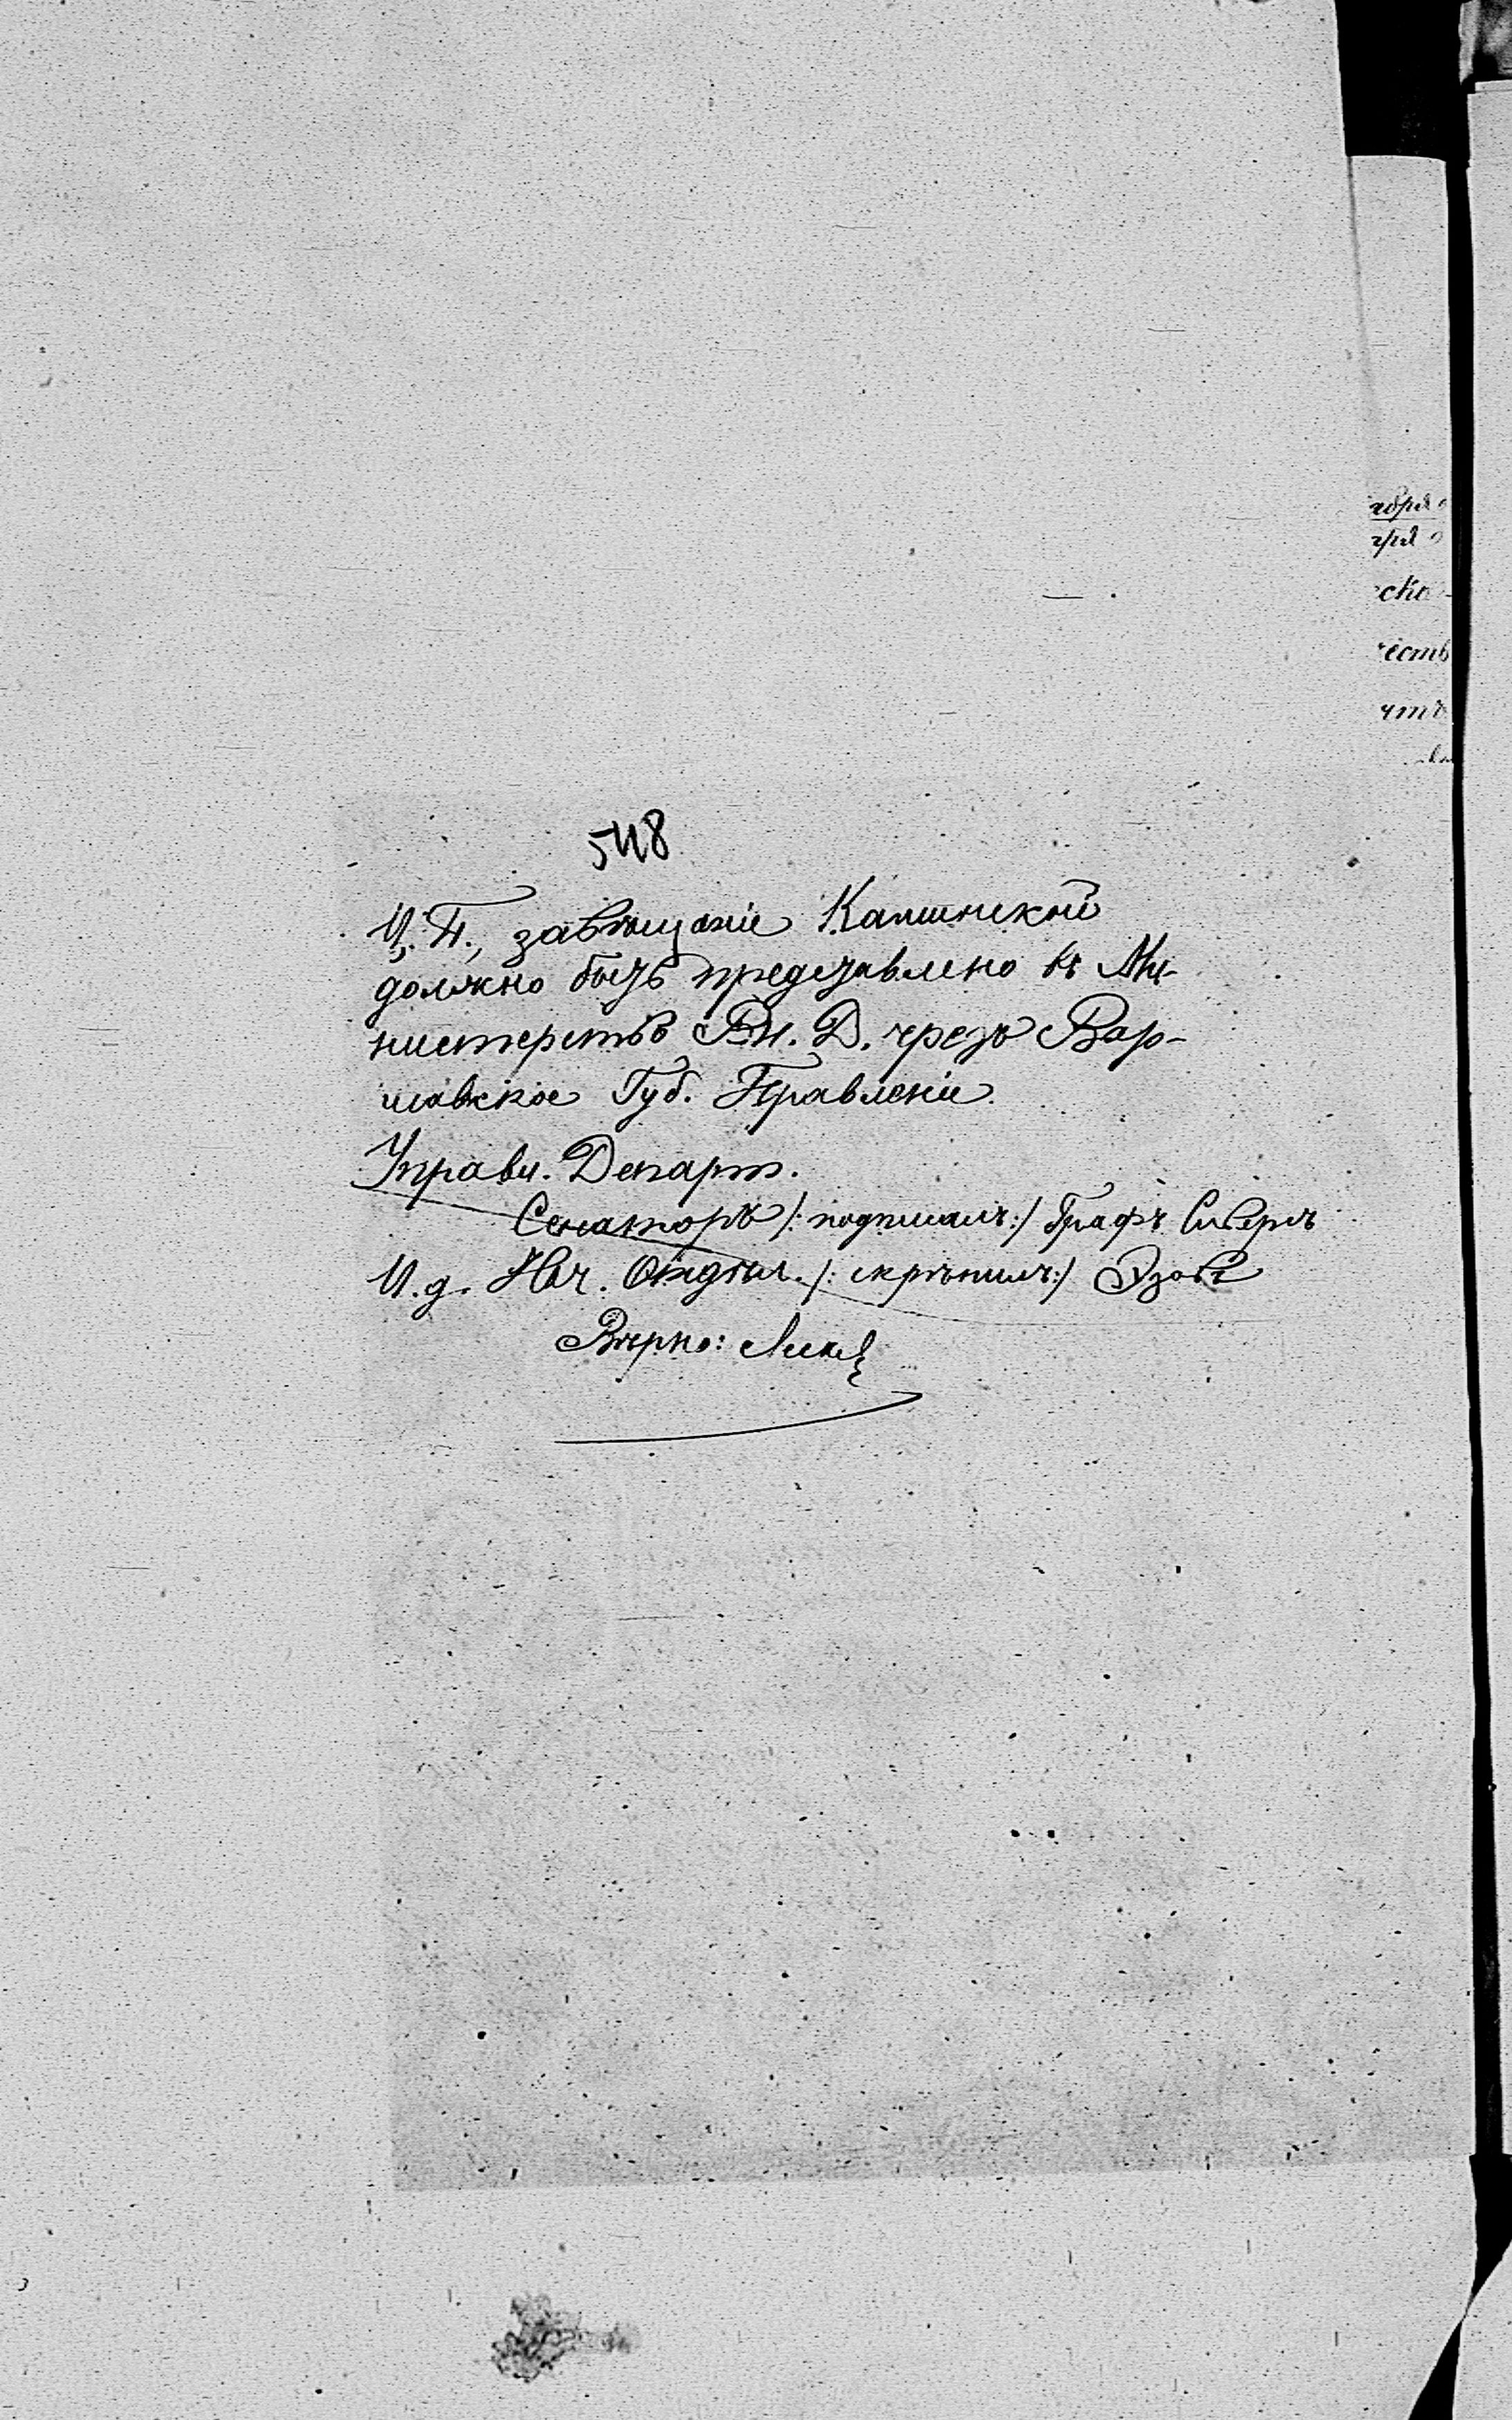 548
Ц. П., завѣщаніе Каминской
должно быть представлено въ Ми-
нистерство Вн. Д. чрезъ Вар-
шавское Губ. Правленіе.
Управл. Департ.
Сенаторъ /: подписалъ:/ Графъ Сиверсъ
И. д. Нач. Отдѣл. /: скрѣпилъ:/ Эзовъ
Вѣрно: